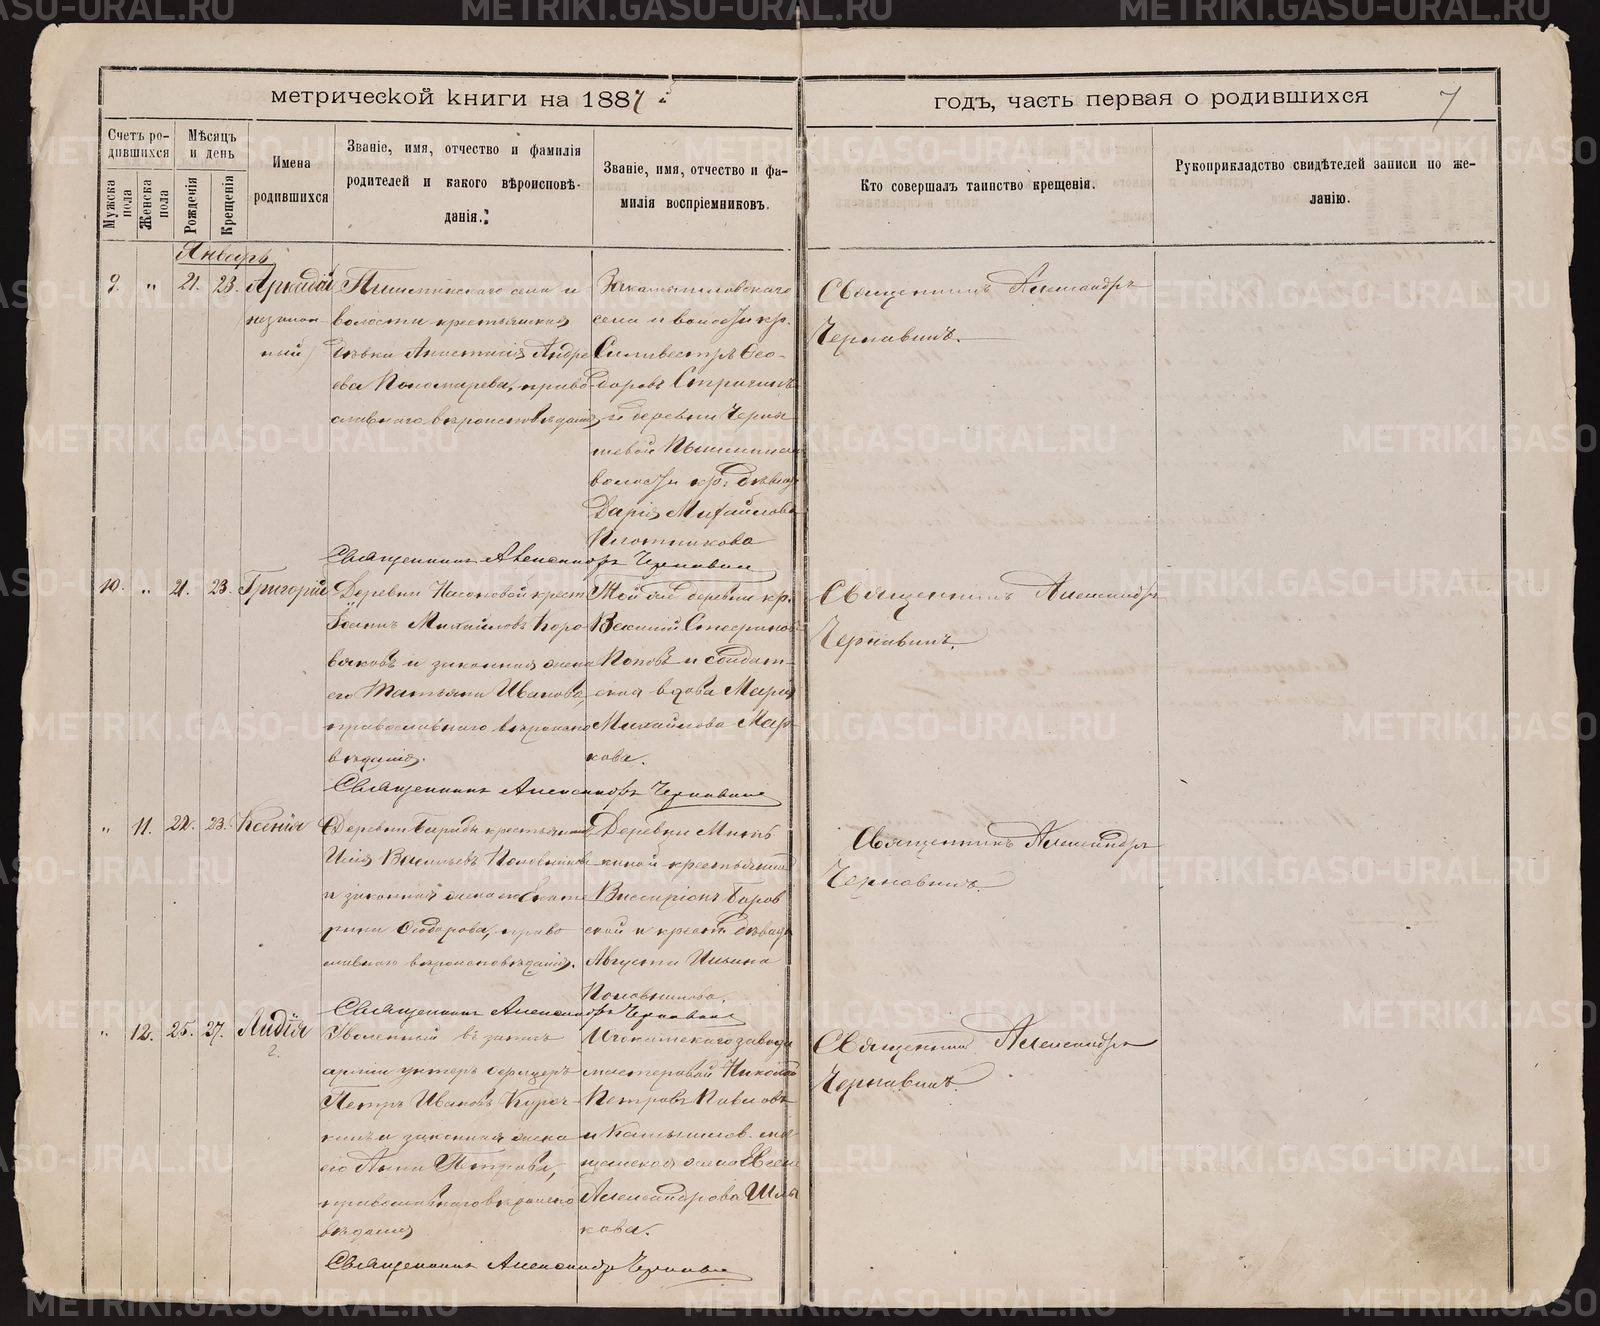 метрической книги на 1887 г.
годъ, часть первая о родившихся
7
Счетъ родившихся
Мужска пола
Женска пола
Мѣсяцъ и день
Рожденія
Крещенія
Имена родившихся
Званіе, имя, отчество и фамилія
родителей и какого вѣроисповѣ-
данія.
Званіе, имя, отчество и фа-
милія воспріемниковъ.
Кто совершалъ таинство крещенія.
Рукоприкладство свидѣтелей записи по же-
ланію.
Январь
9. " 21. 23. Аркадій
незакон
ный
села и
волости крестьянская
дѣвка Анастасія Андре
ева Пономарева, право-
славнаго вѣроисповѣданія
села и волости кр.
Сильвестръ Ѳео-
доровъ
и деревни Черны
шевой Пышминской
волости кр. дѣвица
Дарія Михайлова
Плотникова
Священникъ Александръ
Чернавинъ.
Священникъ Александръ Чернавинъ
10. " 21. 23. Григорій
Деревни крест
Іоаннъ Михайловъ Коро
вяковъ и законная жена
его Татьяна Иванова,
православнаго вѣроиспо
вѣданія.
Той же деревни кр.
Поповъ и солдат-
ская вдова Марія
Михайлова Мар-
кова.
Священникъ Александръ
Чернавинъ.
Священникъ Александръ Чернавинъ
" 11. 22. 23. Ксенія
Деревни крестьянинъ
Илія Васильевъ Половников
и законная жена его Екате
рина Ѳеодорова, право
славнаго вѣроисповѣданія.
Деревни
крестьянинъ
Виссаріонъ Боров
ской и крест. дѣвица
Августа Ильина
Половникова.
Священникъ Александръ
Чернавинъ.
Священникъ Александръ Чернавинъ
" 12. 25. 27. Лидія
Уволенный въ запасъ
арміи унтеръ офицеръ
Петръ Ивановъ Куроч-
кинъ и законная жена
его Анна Петрова,
православнаго вѣроиспо
вѣданія
завода
мастеровой Николай
Петровъ Павловъ
и Камышлов. мѣ-
щанская жена
Александрова
кова.
Священникъ Александръ
Чернавинъ.
Священникъ Александръ Чернавинъ
METRIKI.GASO-URAL.RU